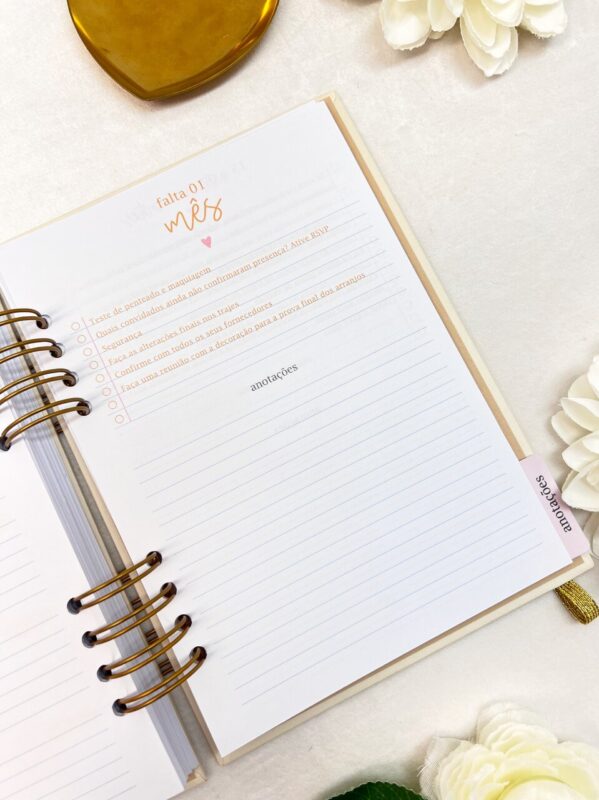 falta 01
mês
Teste de penteado e maquiagem
Quais convidados ainda não confirmaram presença? Ative RSVP
Segurança
Faça as alterações finais nos trajes
Confirme com todos os seus fornecedores
Faça uma reunião com a decoração para a prova final dos arranjos
anotações
anotações